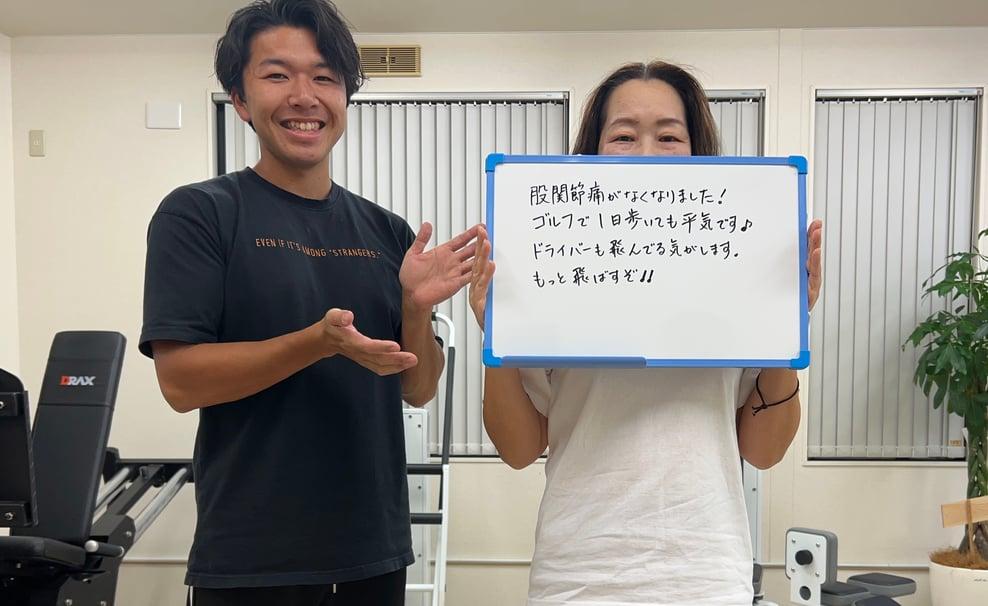 股関節痛がなくなりました!
ゴルフで1日歩いても平気です♪
ドライバーも飛んでる気がします.
もっと飛ばすぞ!!
EVEN IF IT'S AMONG "STRANGERS."
DRAX